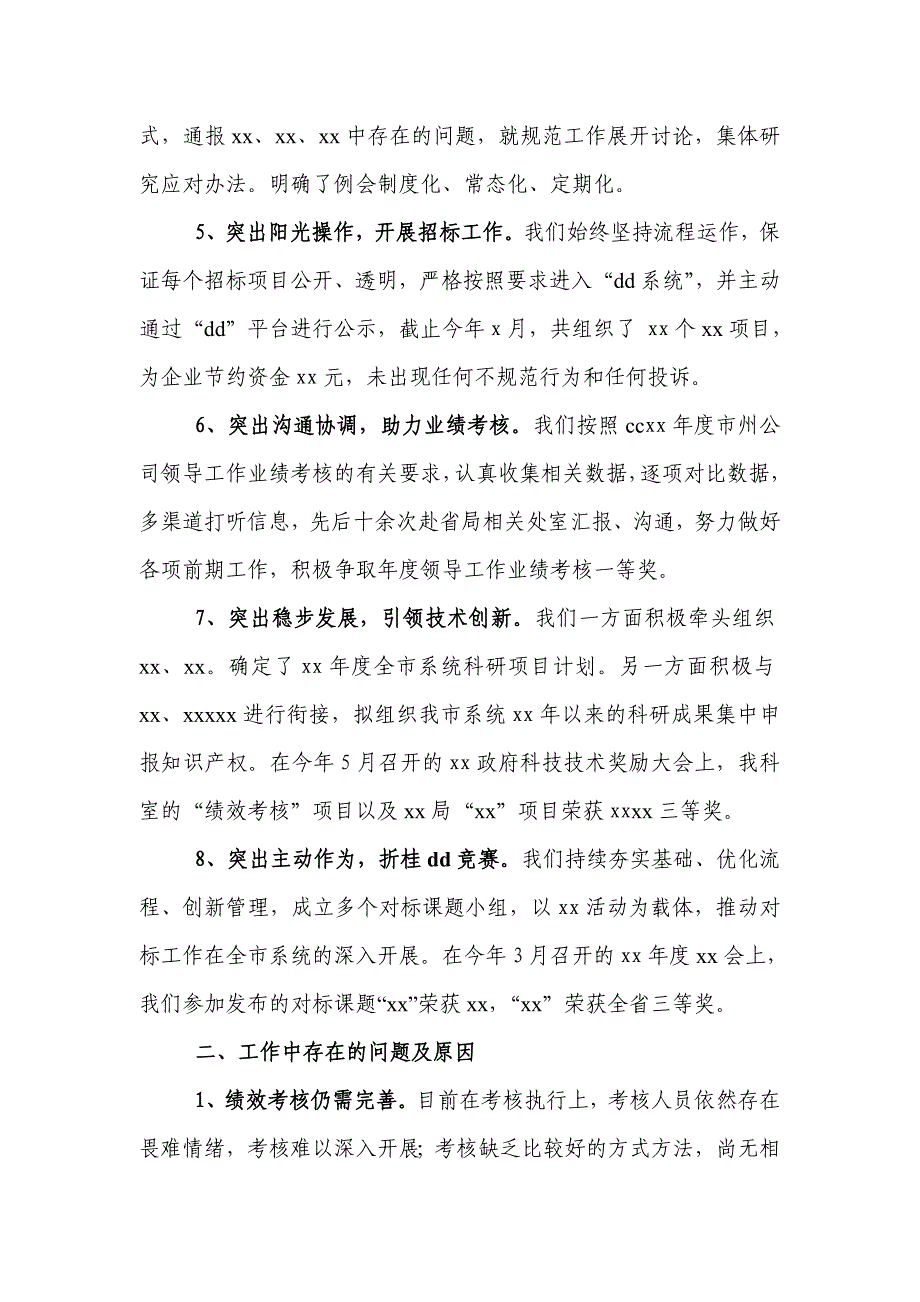 式，通报 xx、xx、xx 中存在的问题，就规范工作展开讨论，集体研
究应对办法。明确了例会制度化、常态化、定期化。
5、突出阳光操作，开展招标工作。我们始终坚持流程运作，保
证每个招标项目公开、透明，严格按照要求进入“dd 系统”，并主动
通过“dd”平台进行公示，截止今年 x 月，共组织了 xx 个 xx 项目，
为企业节约资金 xx 元，未出现任何不规范行为和任何投诉。
6、突出沟通协调，助力业绩考核。我们按照 ccxx 年度市州公
司领导工作业绩考核的有关要求，认真收集相关数据，逐项对比数据，
多渠道打听信息，先后十余次赴省局相关处室汇报、沟通，努力做好
各项前期工作，积极争取年度领导工作业绩考核一等奖。
7、突出稳步发展，引领技术创新。我们一方面积极牵头组织
xx、xx。确定了 xx 年度全市系统科研项目计划。另一方面积极与
xx、xxxxx 进行衔接，拟组织我市系统 xx 年以来的科研成果集中申
报知识产权。在今年 5 月召开的 xx 政府科技技术奖励大会上，我科
室的“绩效考核”项目以及 xx 局 “xx”项目荣获 xxxx 三等奖。
8、突出主动作为，折桂 dd 竞赛。我们持续夯实基础、优化流
程、创新管理，成立多个对标课题小组，以 xx 活动为载体，推动对
标工作在全市系统的深入开展。在今年 3 月召开的 xx 年度 xx 会上，
我们参加发布的对标课题“xx”荣获 xx，“xx”荣获全省三等奖。
二、工作中存在的问题及原因
1、绩效考核仍需完善。目前在考核执行上，考核人员依然存在
畏难情绪，考核难以深入开展; 考核缺乏比较好的方式方法，尚无相